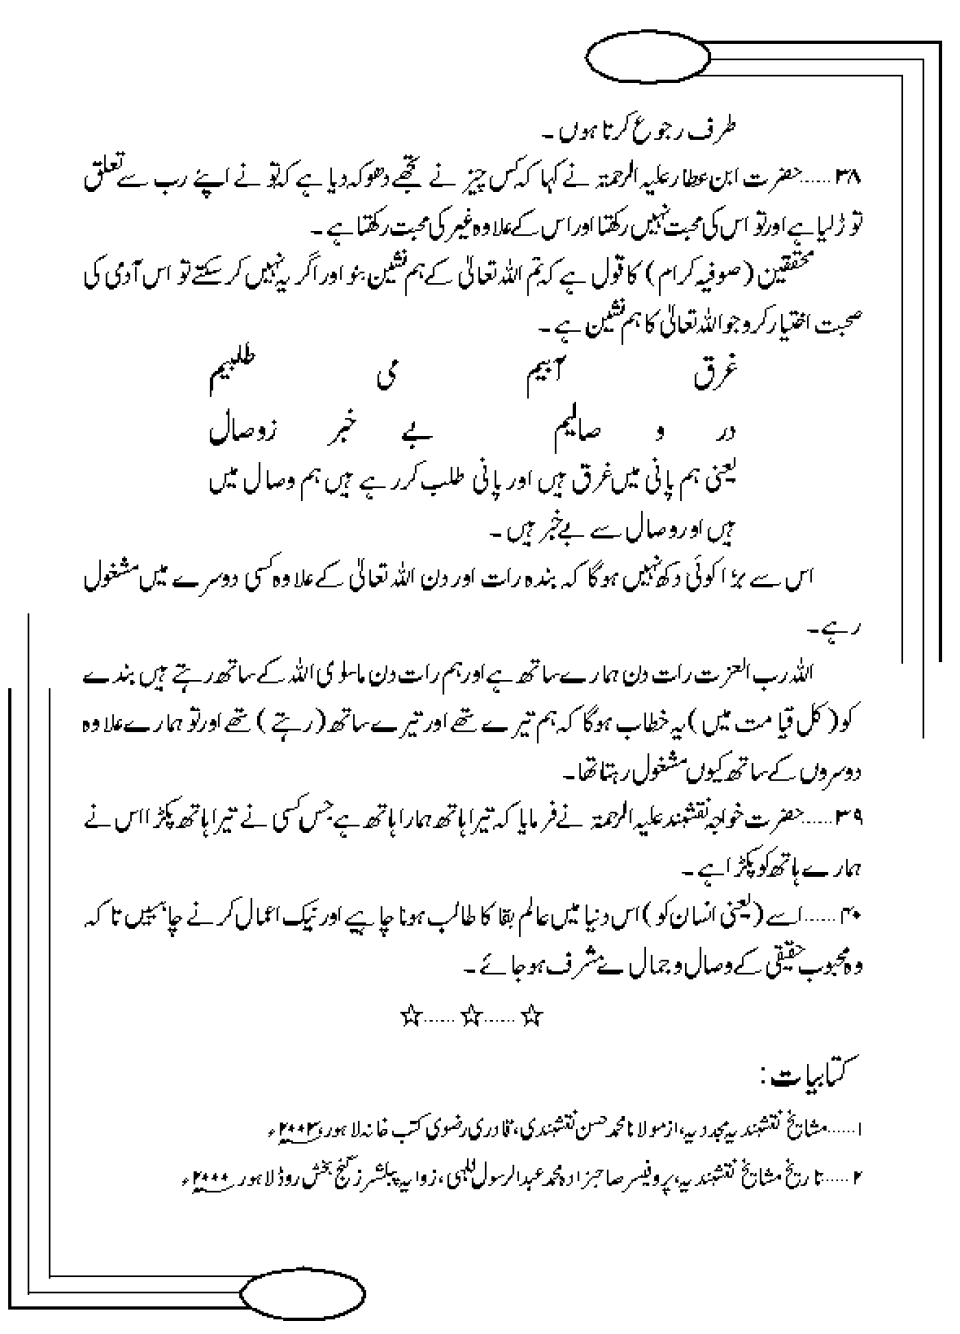 طرف رجوع کرتا ہوں ۔
۳۸......حضرت ابن عطار علیہ الرحمۃ نے کہا کہ کس چیز نے تجھے دھوکہ دیا ہے کہ تو نے اپنے رب سے تعلق
توڑ لیا ہے اور تو اس کی محبت نہیں رکھتا اور اس کے علاوہ غیر کی محبت رکھتا ہے ۔
محققین (صوفیہ کرام) کا قول ہے کہ تم اللہ تعالیٰ کے ہم نشین بنو اور اگر یہ نہیں کر سکتے تو اس آدمی کی
صحبت اختیار کرو جو اللہ تعالیٰ کا ہم نشین ہے ۔
غرق آبیم می طلبیم
در و صالیم بے خبر زوصال
یعنی ہم پانی میں غرق ہیں اور پانی طلب کر رہے ہیں ہم وصال میں
ہیں اور وصال سے بے خبر ہیں ۔
اس سے بڑا کوئی دکھ نہیں ہوگا کہ بندہ رات اور دن اللہ تعالیٰ کے علاوہ کسی دوسرے میں مشغول
رہے۔
اللہ رب العزت رات دن ہمارے ساتھ ہے اور ہم رات دن ماسوی اللہ کے ساتھ رہتے ہیں بندے
کو (کل قیامت میں) یہ خطاب ہوگا کہ ہم تیرے تھے اور تیرے ساتھ (رہتے) تھے اور تو ہمارے علاوہ
دوسروں کے ساتھ کیوں مشغول رہتا تھا۔
۳۹......حضرت خواجہ نقشبند علیہ الرحمۃ نے فرمایا کہ تیرا ہاتھ ہمارا ہاتھ ہے جس کسی نے تیرا ہاتھ پکڑا اس نے
ہمارے ہاتھ کو پکڑا ہے ۔
۴۰......اسے (یعنی انسان کو) اس دنیا میں عالم بقا کا طالب ہونا چاہیے اور نیک اعمال کرنے چاہییں تا کہ
وہ محبوب حقیقی کے وصال و جمال سے مشرف ہو جائے ۔
☆......☆......☆
کتابیات :
۱......مشایخ نقشبندیہ مجددیہ، از مولانا محمد حسن نقشبندی، قادری رضوی کتب خانہ لاہور، ؁۲۰۰۲ء
۲......تاریخ مشایخ نقشبندیہ، پروفیسر صاحبزادہ محمد عبدالرسول للّٰہی، زوایہ پبلشرز گنج بخش روڈ لاہور ؁۲۰۰۰ء